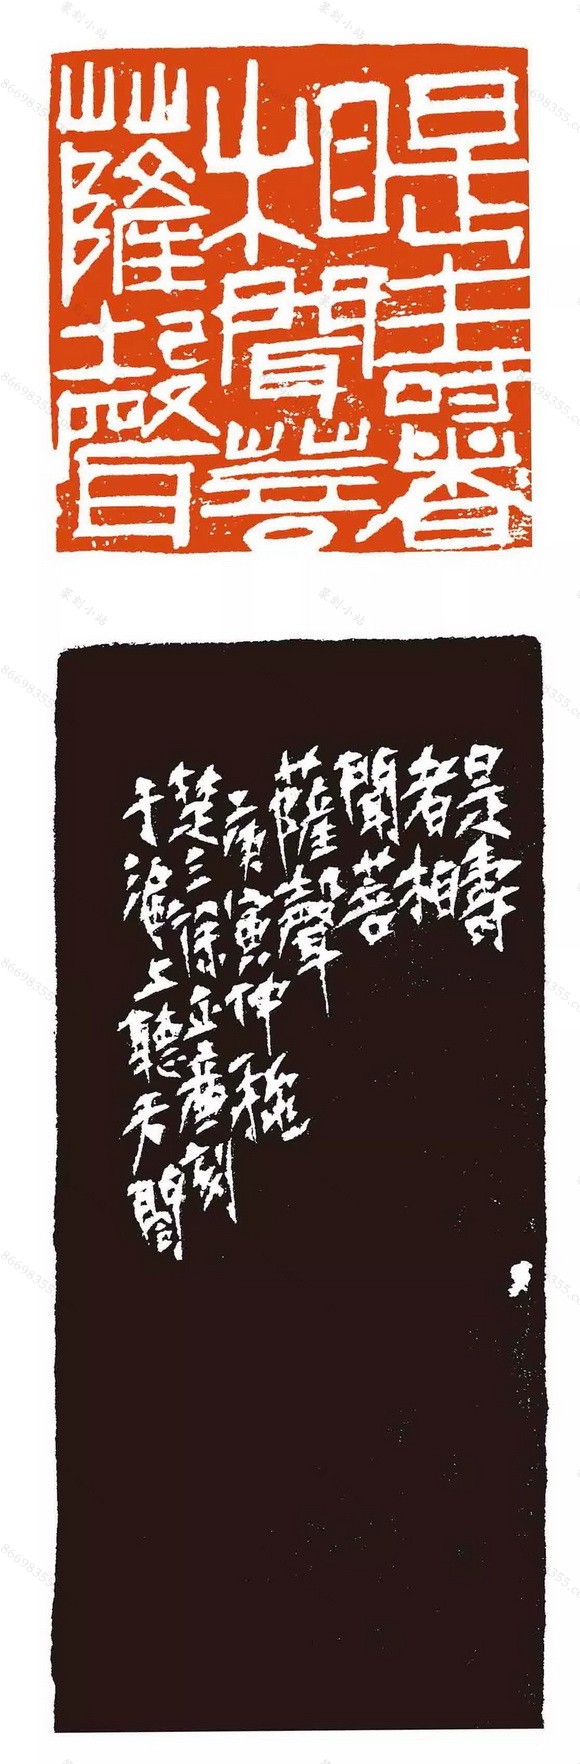 是壽者
相聞菩
薩聲
是壽
者相
聞菩
薩聲
庚寅仲穐
楚三徐正廉刻
于滬上聽天閣
篆刻小站